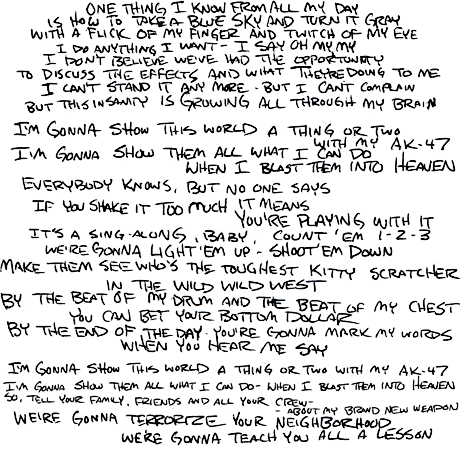 ONE THING I KNOW FROM ALL MY DAY
IS HOW TO TAKE A BLUE SKY AND TURN IT GRAY
WITH A FLICK OF MY FINGER AND TWITCH OF MY EYE
I DO ANYTHING I WANT - I SAY OH MY MY
I DON'T BELIEVE WE'VE HAD THE OPPORTUNITY
TO DISCUSS THE EFFECTS AND WHAT THEY'RE DOING TO ME
I CAN'T STAND IT ANY MORE - BUT I CAN'T COMPLAIN
BUT THIS INSANITY IS GROWING ALL THROUGH MY BRAIN
I'M GONNA SHOW THIS WORLD A THING OR TWO
WITH MY AK-47
I'M GONNA SHOW THEM ALL WHAT I CAN DO
WHEN I BLAST THEM INTO HEAVEN
EVERYBODY KNOWS, BUT NO ONE SAYS
IF YOU SHAKE IT TOO MUCH IT MEANS
YOU'RE PLAYING WITH IT
IT'S A SING-ALONG, BABY, COUNT 'EM 1-2-3
WE'RE GONNA LIGHT 'EM UP - SHOOT 'EM DOWN
MAKE THEM SEE WHO'S THE TOUGHEST KITTY SCRATCHER
IN THE WILD WILD WEST
BY THE BEAT OF MY DRUM AND THE BEAT OF MY CHEST
YOU CAN BET YOUR BOTTOM DOLLAR
BY THE END OF THE DAY - YOU'RE GONNA MARK MY WORDS
WHEN YOU HEAR ME SAY
I'M GONNA SHOW THIS WORLD A THING OR TWO WITH MY AK-47
I'M GONNA SHOW THEM ALL WHAT I CAN DO - WHEN I BLAST THEM INTO HEAVEN
SO, TELL YOUR FAMILY, FRIENDS AND ALL YOUR CREW -
- ABOUT MY BRAND NEW WEAPON
WE'RE GONNA TERRORIZE YOUR NEIGHBORHOOD
WE'RE GONNA TEACH YOU ALL A LESSON